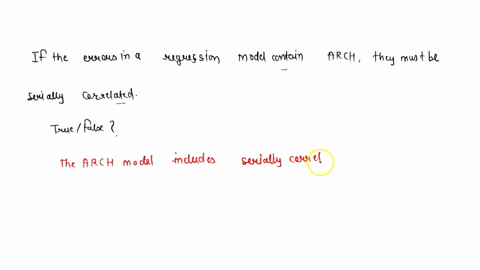 If the errors in a regression model contain ARCH, they must be
serially correlated.
True/false?
The ARCH model includes serially correl